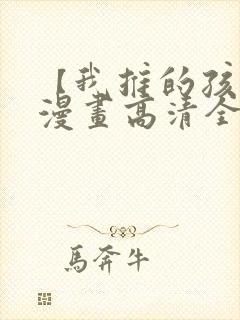 【我推的孩
漫畫高清全
馬奔牛